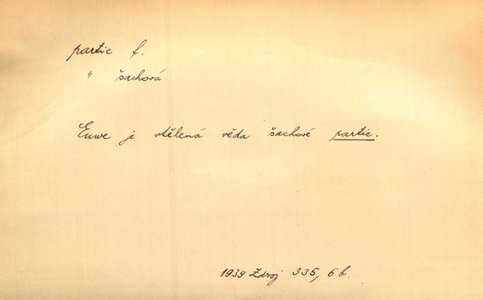 partie f.
" šachová
Euwe je vtělená věda šachové partie.
1939 Zdroj 335, 6 b.